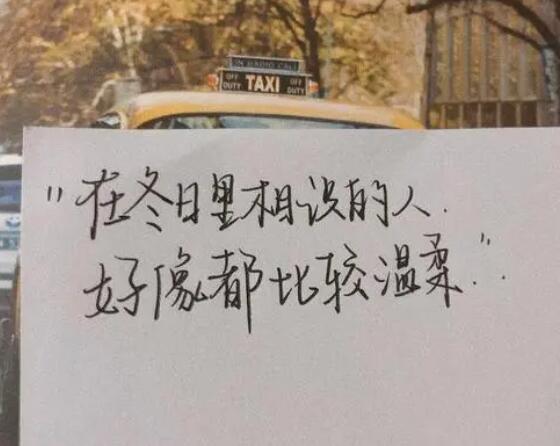 IN RADIO CALL
OFF DUTY TAXI OFF DUTY
"在冬日里相识的人.
好像都比较温柔."